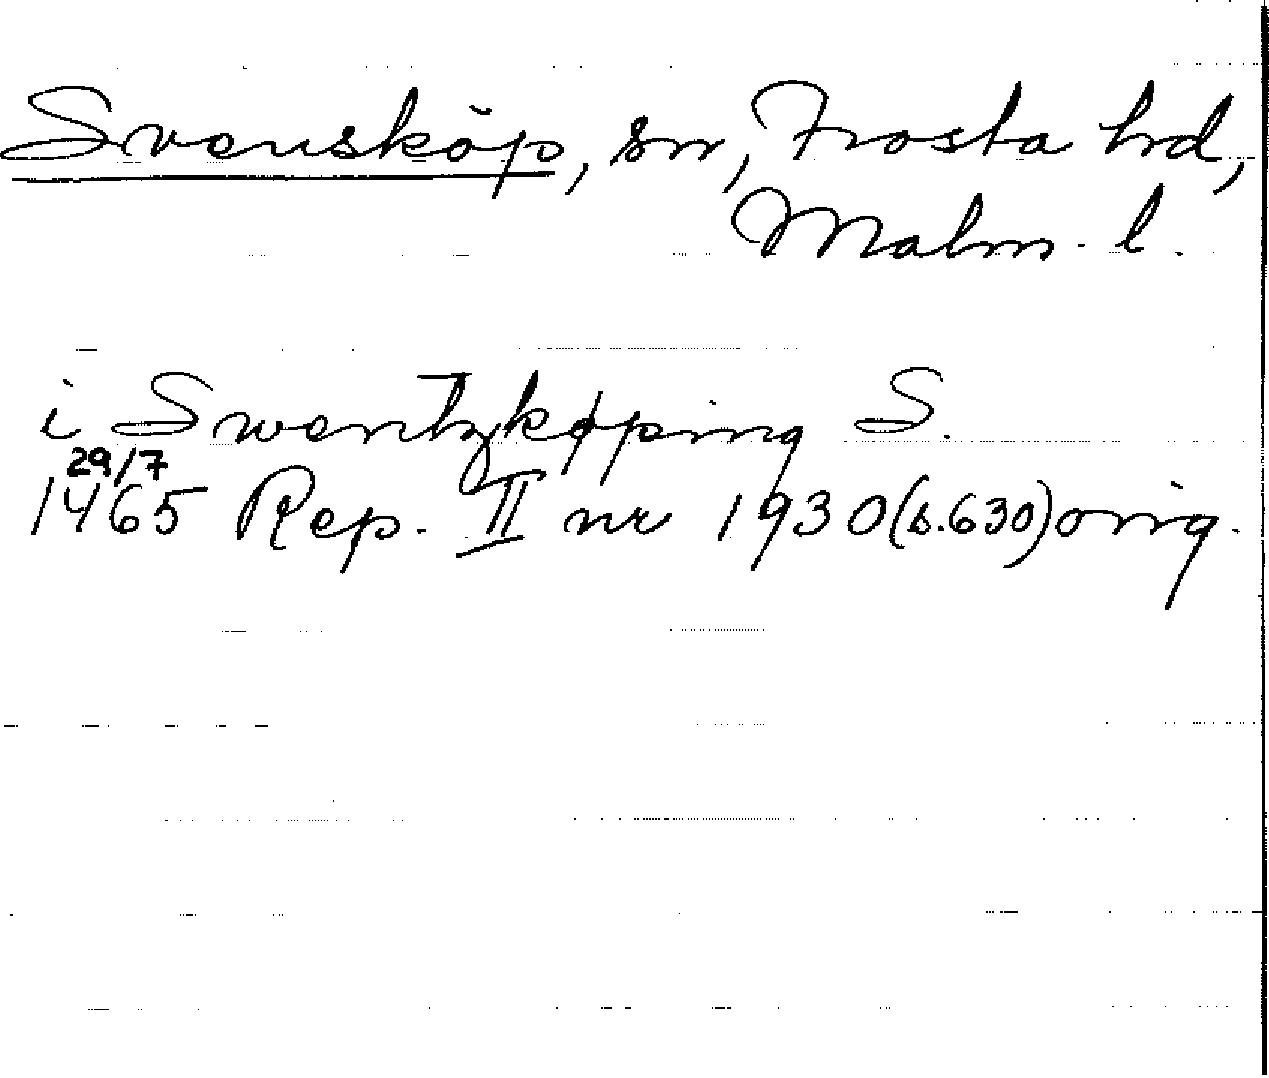 Svensköp, sn, Frosta hrd,
Malm. l.
i Swentzkøping S.
29/7
1465 Rep. II nr 1930 (s.630) orig.